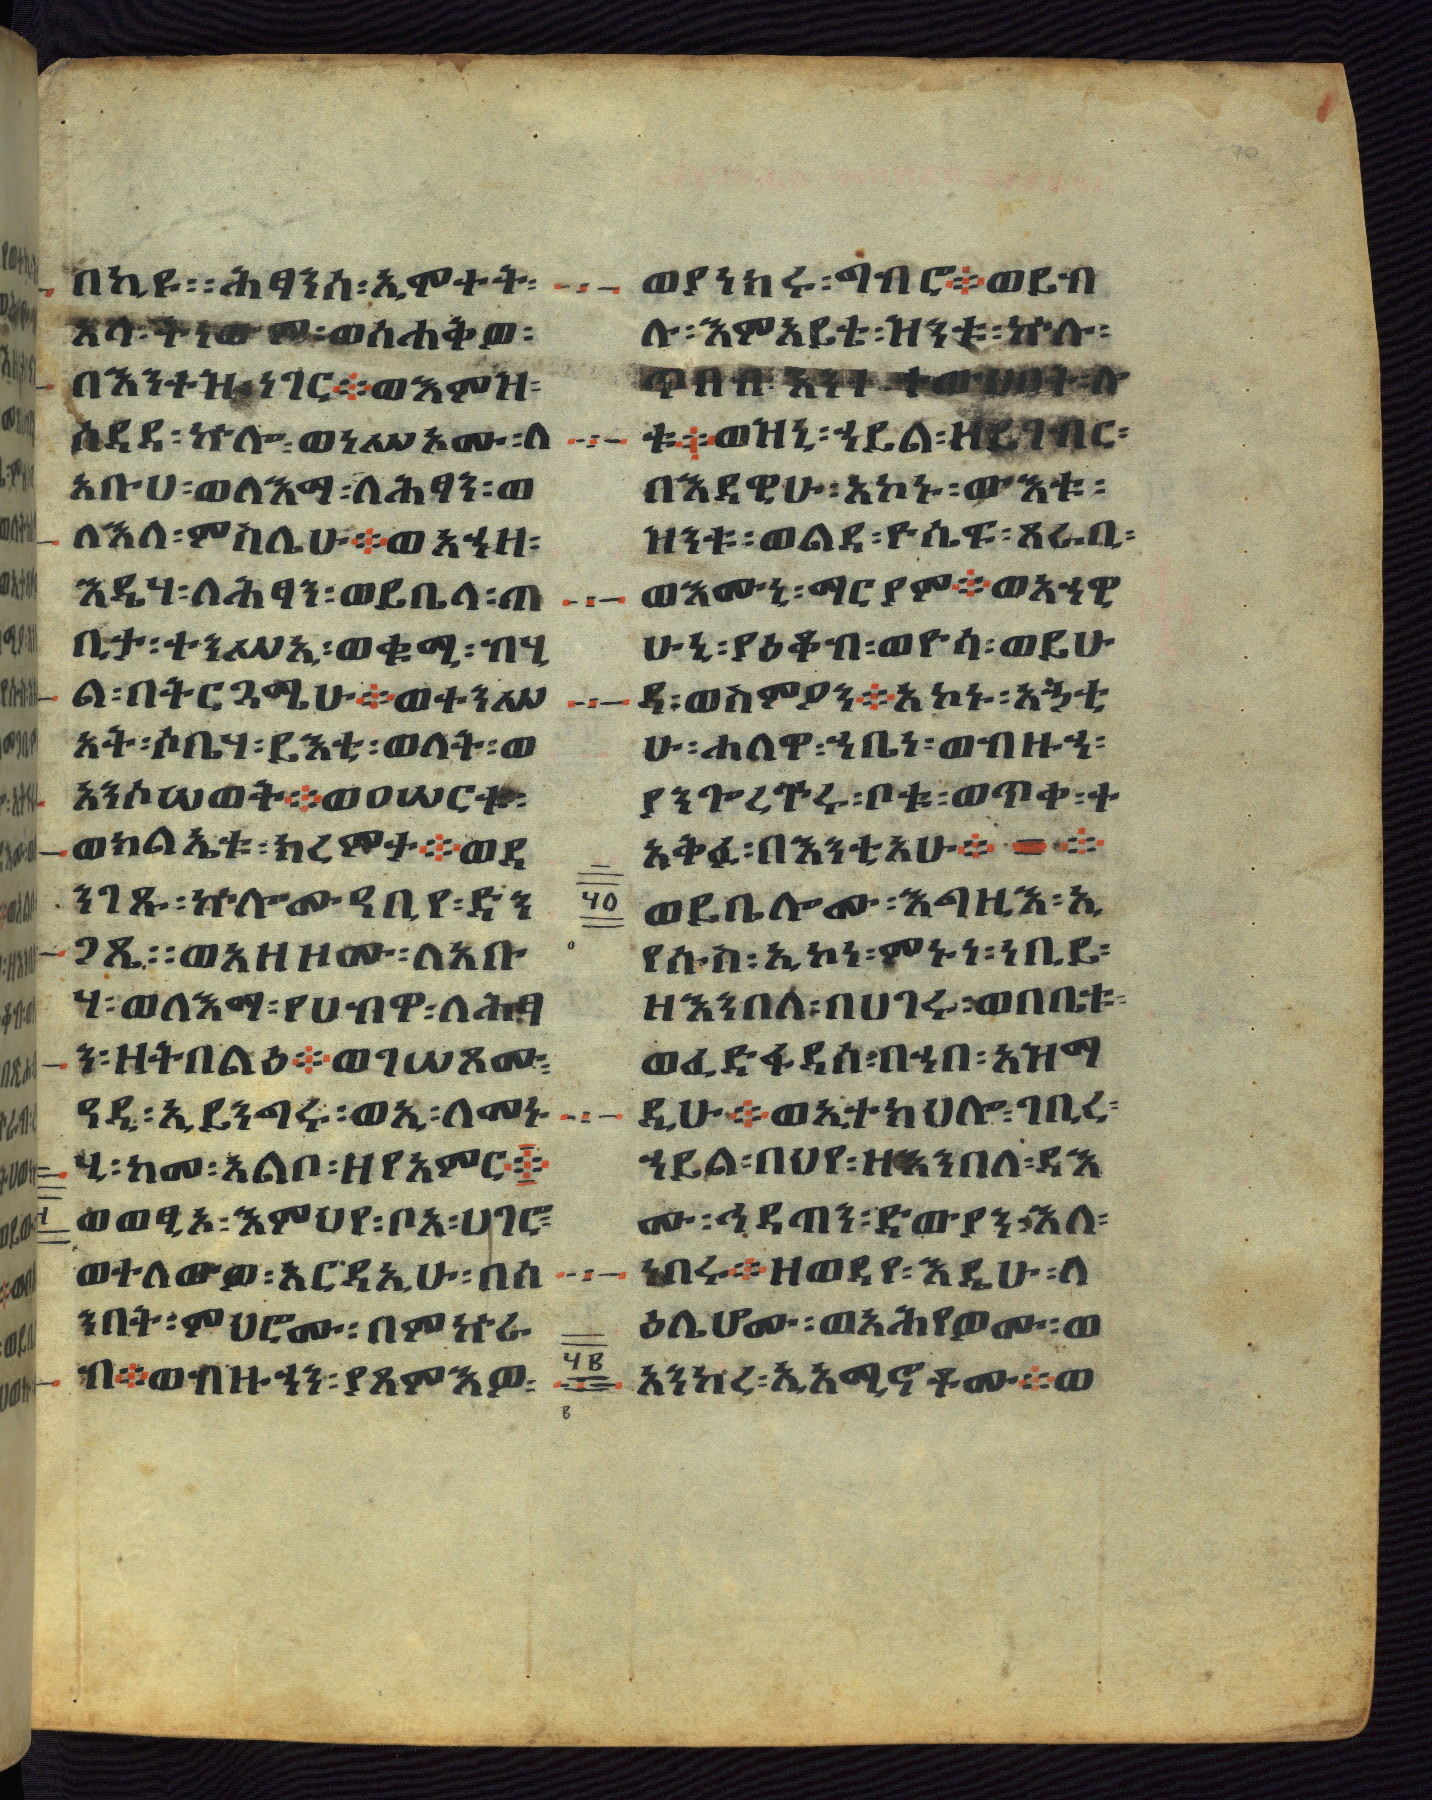 በኪይ፡፡ሕፃንስ፡ኢሞተት፡
አላ፡ትነውም፡ወሰሐቅዎ፡
በእንተዝ፡ነገር፨ወእምዝ፡
ሰደደ፡ኵሎ፡ወነሥአሙ፡ለ
አቡሀ፡ወለእማ፡ለሕፃን፡ወ
ለእለ፡ምስሌሁ፨ወአኀዘ፡
እዴሃ፡ለሕፃን፡ወይቤላ፡ጠ
ቢታ፡ተንሥኢ፡ወቁሚ፡ብሂ
ል፡በትርጓሜሁ፨ወተንሥ
አት፡ሶቤሃ፡ይእቲ፡ወለት፡ወ
አንሶሠወት፨ወዐሠርቱ፡
ወክልኤቱ፡ክረምታ፨ወደ
ንገጹ፡ኵሎሙ፡ዓቢየ፡ድን
ጋጼ፡፡ወአዘዞሙ፡ለአቡ
ሃ፡ወለእማ፡የሀብዋ፡ለሕፃ
ን፡ዘትበልዕ፨ወገሠጾሙ፡
ዓዲ፡ኢይንግሩ፡ወኢ፡ለመኑ
ሂ፡ከመ፡አልቦ፡ዘየአምር፨
ወወፂኦ፡እምህየ፡ቦአ፡ሀገሮ፡
ወተለውዎ፡አርዳኢሁ፡በሰ
ንበት፡ምህሮሙ፡በምኵራ
ብ፨ወብዙኃን፡ያጸምእዎ፡
40
42
ወያነክሩ፡ግብሮ፨ወይብ
ሉ፡እምአይቴ፡ዝንቱ፡ኵሉ፡
ጥበብ፡እንተ፡ተውህበት፡ሎ
ቱ፨ወዝኒ፡ኀይል፡ዘይገብር፡
በእደዊሁ፡አኮኑ፡ውእቱ፡
ዝንቱ፡ወልደ፡ዮሴፍ፡ጸራቢ፡
ወእሙኒ፡ማርያም፨ወአኀዊ
ሁኒ፡ያዕቆብ፡ወዮሳ፡ወይሁ
ዳ፡ወስምዖን፨አኮኑ፡አኃቲ
ሁ፡ሐለዋ፡ኀቤነ፡ወብዙኀ፡
ያንጐረጕሩ፡ቦቱ፡ወጥቀ፡ተ
አቅፉ፡በእንቲአሁ፨
ወይቤሎሙ፡እግዚእ፡ኢ
የሱስ፡ኢኮነ፡ምኑነ፡ነቢይ፡
ዘእንበለ፡በሀገሩ፡ወበቤቱ፡
ወፈድፋዳሰ፡በኀበ፡አዝማ
ዲሁ፨ወኢተክህሎ፡ገቢረ፡
ኀይል፡በህየ፡ዘእንበለ፡ዳእ
ሙ፡ኅዳጣን፡ድውያን፡እለ፡
ነበሩ፨ዘወደየ፡እዴሁ፡ላ
ዕሌሆሙ፡ወአሕየዎሙ፡ወ
አንከረ፡ኢአሚኖቶሙ፨ወ